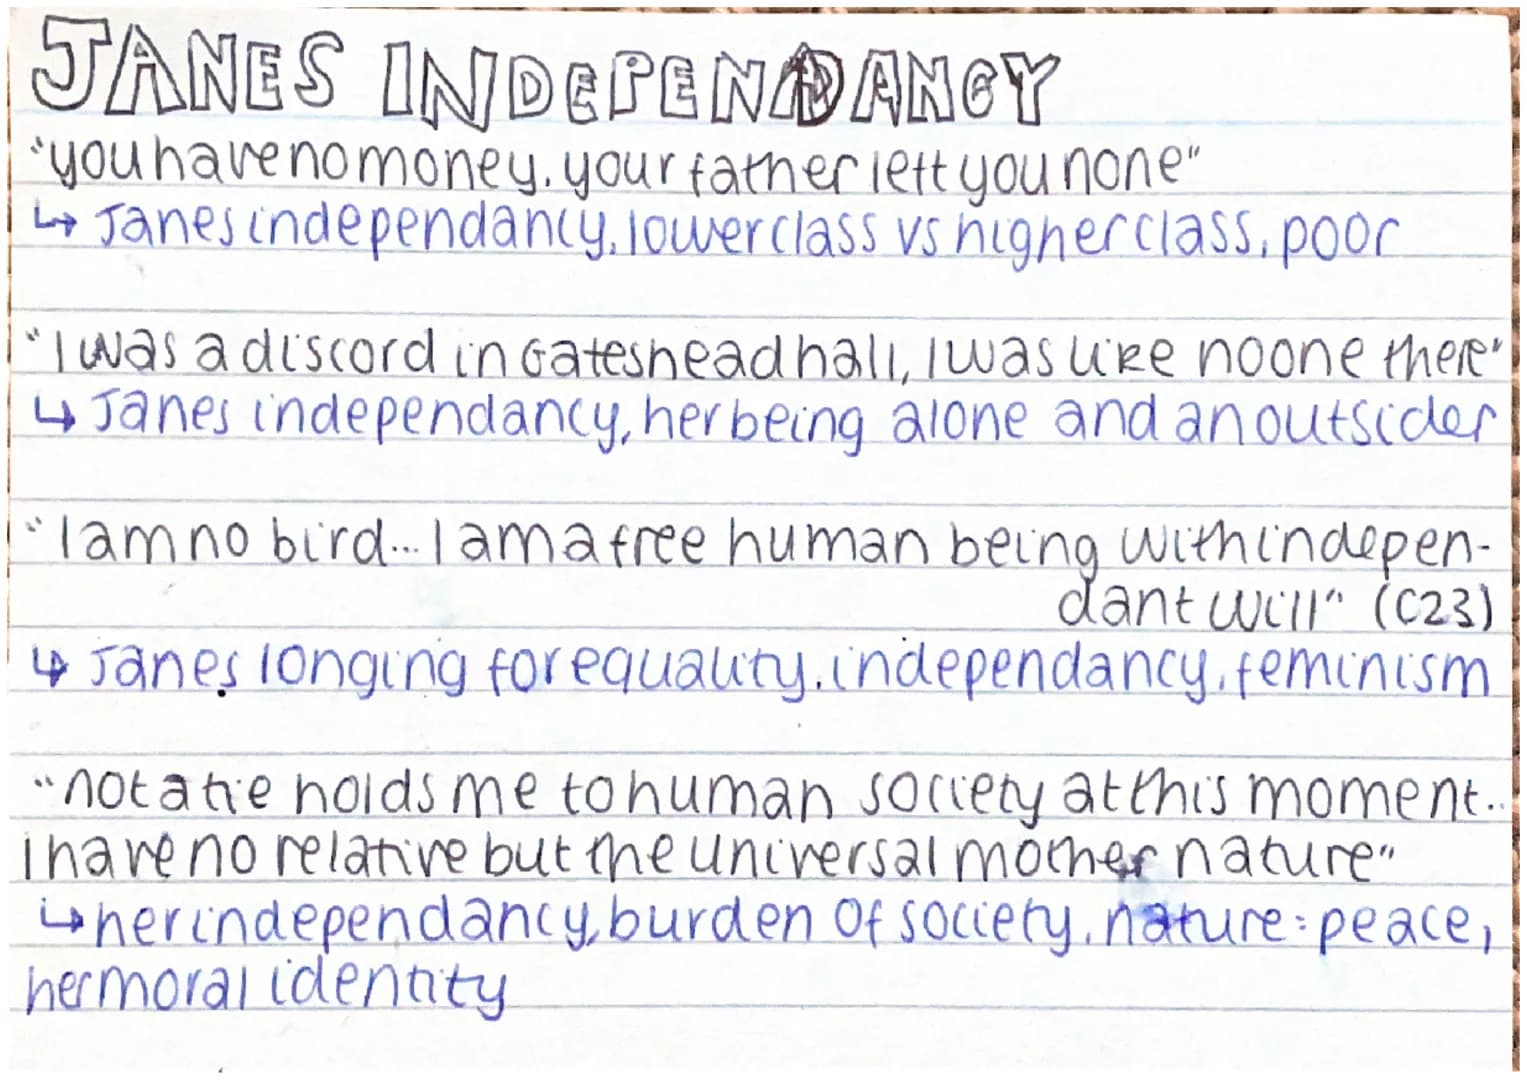 JANES INDEPENDANCY
"you have no money, your father left you none"
↳ Janes independancy, lower class vs higher class, poor
"I was a discord in Gateshead hall, I was like no one there"
↳ Janes independancy, her being alone and an outsider
"I am no bird... I am a free human being with indepen-
dant will" (C23)
↳ Janes longing for equality, independancy, feminism
"not a tie holds me to human society at this moment..
i have no relative but the universal mother nature"
↳ her independancy, burden of society, nature: peace,
her moral identity